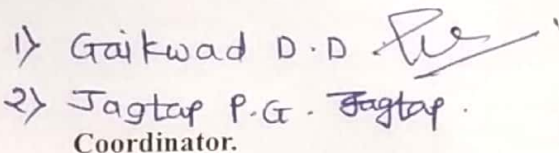 1) Gaikwad D.D
2) Jagtap P.G. Jagtap.
Coordinator.